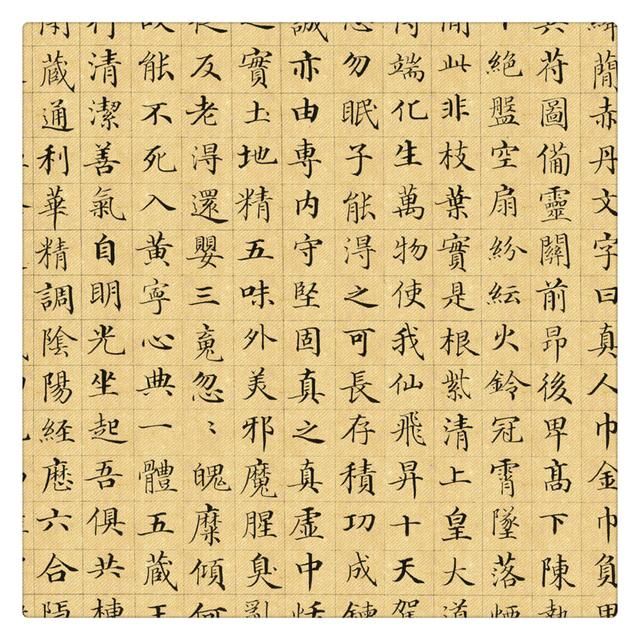 蕳赤丹文字曰真人巾金巾負甲
符圖備靈關前昂後卑髙下陳執
絕盤空扇紛紜火鈴冠霄墜落煙
此非枝葉實是根紫清上皇大道
端化生萬物使我仙飛昇十天駕
勿眠子能淂之可長存積功成鍊
誠亦由専內守堅固真之真虛中恬
之實土地精五味外美邪魔腥臭亂
反老淂還嬰三䰟忽〻魄糜傾何
能不死入黃寧心典一體五藏王
行清潔善氣自明光坐起吾俱共棟
藏通利華精調陰陽経歷六合